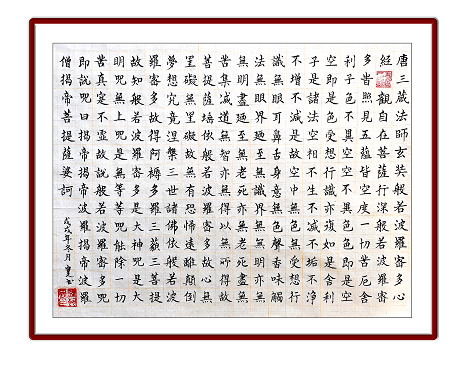 唐三藏法師玄奘般若波羅蜜多心
經觀自在菩薩行深般若波羅蜜
多旹照見五蘊皆空度一切苦厄舍
利子色不異空空不異色色即是空
空即是色受想行識亦復如是舍利
子是諸法空相不生不滅不垢不淨
不增不減是故空中無色無受想行
識無眼耳鼻舌身意無色聲香味觸
法無眼界廼至無識界無無明亦無
無明盡廼至無老死亦無老死盡無
苦集滅道無智亦無得以無所得故
菩提薩埵依般若波羅蜜多故心無
罣礙無罣礙故無有恐怖遠離顛倒
夢想究竟涅槃三世諸佛依般若波
羅蜜多故得阿耨多羅三藐三菩提
故知般若波羅蜜多是大神咒是大
明咒無上咒是無等等咒能除一切
苦真實不虛故說般若波羅蜜多咒
即說咒曰揭帝揭帝波羅揭帝波羅
僧揭帝菩提薩婆訶
戊戌年冬月